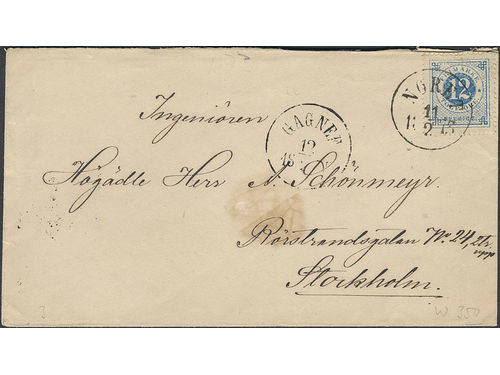 12
GAGNEF
12
18
11
2
Ingeniören
Högädle Herr A. Schönmeyr.
Rörstrandsgatan No. 24, 2tr.
upp
Stockholm.